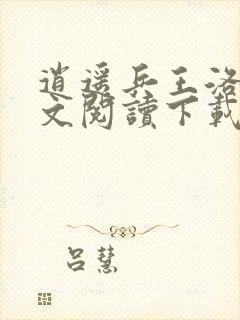 逍遥兵王洛
文閱讀下載
呂慧